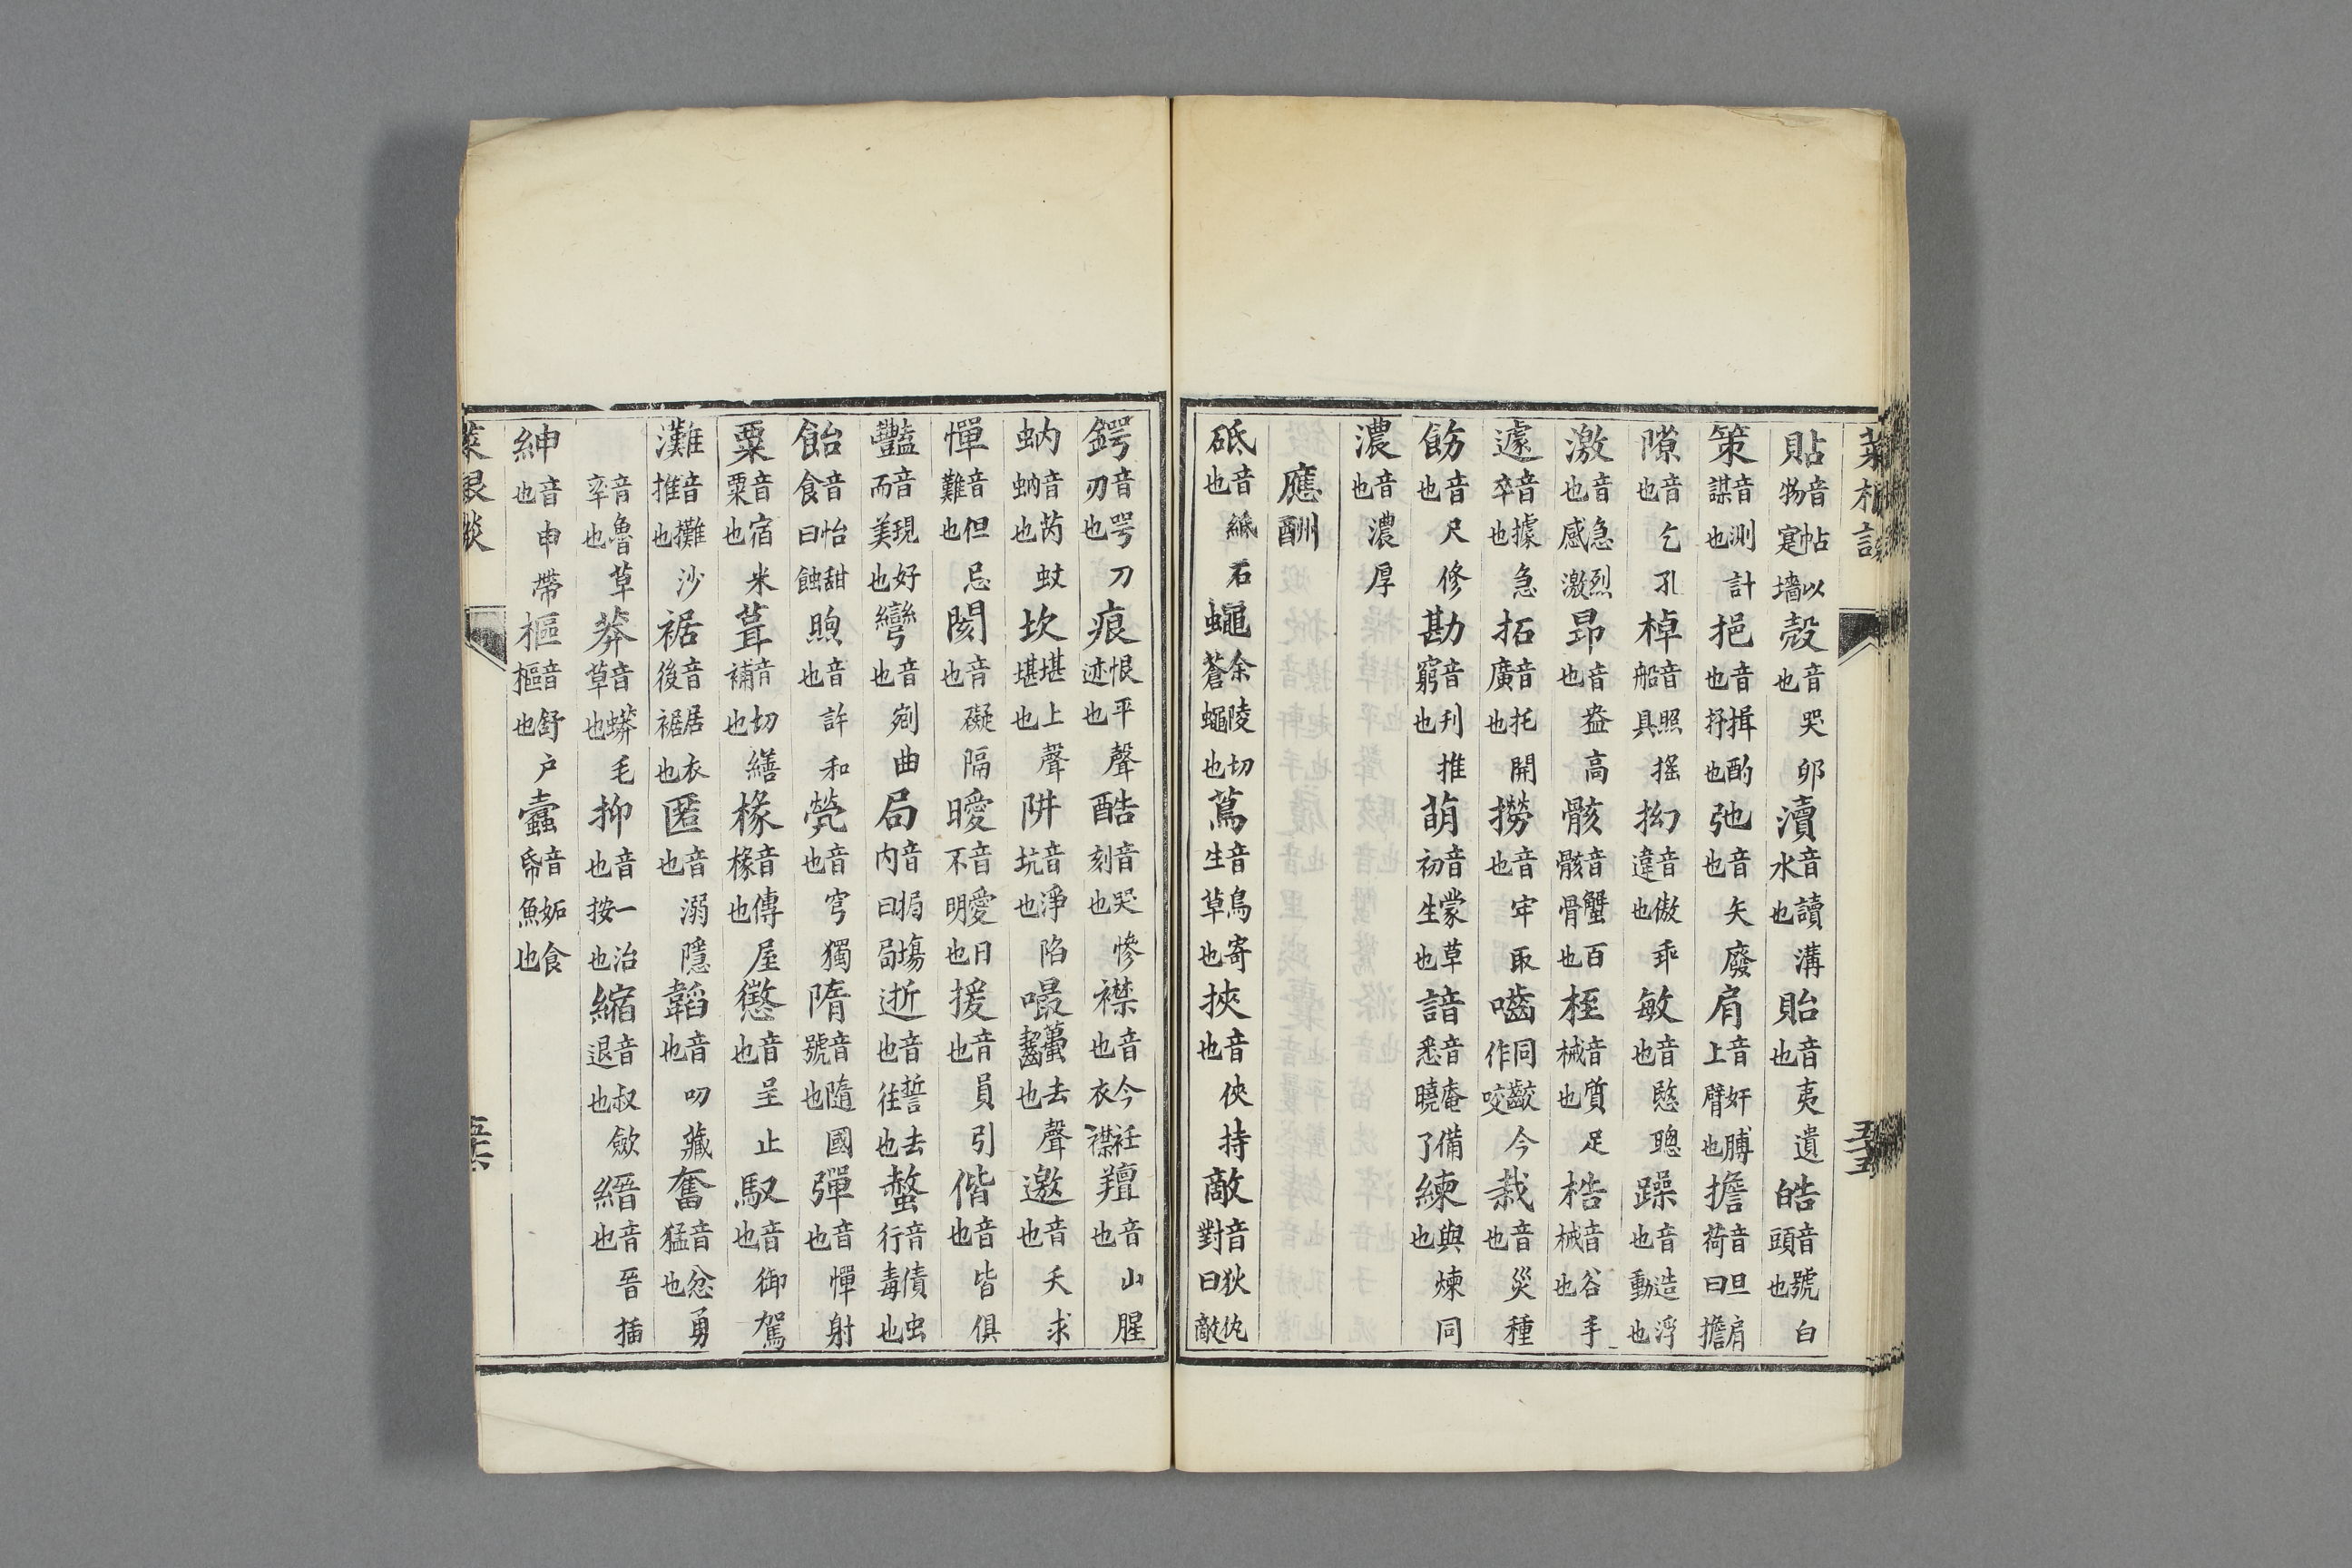 菜根談
五十五
貼音帖以物寔墻殼音哭卵也瀆音讀溝水也貽音夷遺也皓音號白頭也
策音測計謀也挹音揖酌也抒也弛音矢廢也肩音奸膊上臂也擔音旦肩荷曰擔
隙音乞孔也棹音照摇船具拗音傲乖違也敏音愍聰也躁音造浮動也
激音急烈也感激昂音盎高也骸音蟹百骸骨也桎音質足械也梏音谷手械也
遽音據急卒也拓音托開廣也撈音牢取也嚙同齩今作咬栽音災種也
飭音尺修也勘音刋推窮也萌音蒙草初生也諳音庵備悉曉了練與煉同也
濃音濃厚也
應酬
砥音紙石也蠅余陵切蒼蠅也蔦音鳥寄生草也挾音俠持也敵音狄仇對曰敵
鍔音咢刀刃也痕恨平聲迹也酷音哭慘刻也襟音今衽也衣襟羶音山腥也
蚋音芮蚊蚋也坎堪上聲堪也阱音淨陷坑也嘬蠆去聲齧也邀音夭求也
憚音但忌難也閡音礙隔也曖音愛日不明也援音員引也偕音皆俱也
豔音現好而美也彎音剜曲也局音挶塲内曰局逝音誓去也往也螫音債虫行毒也
飴音怡甜食曰蝕煦音許和也煢音穹獨也隋音隨國號也彈音憚射也
粟音宿米粟也葺音切繕補也椽音傳屋椽也懲音呈止也馭音御駕也
灘音攤沙推也裾音居衣後裾也匿音溺隱也韜音叨藏也奮音忿勇猛也
音魯草率也莽音蟒毛草也抑音一治也按也縮音叔歛退也縉音晉插也
紳音申帶也樞音舒户樞也蠹音妬食帛魚也
菜根談
五十六